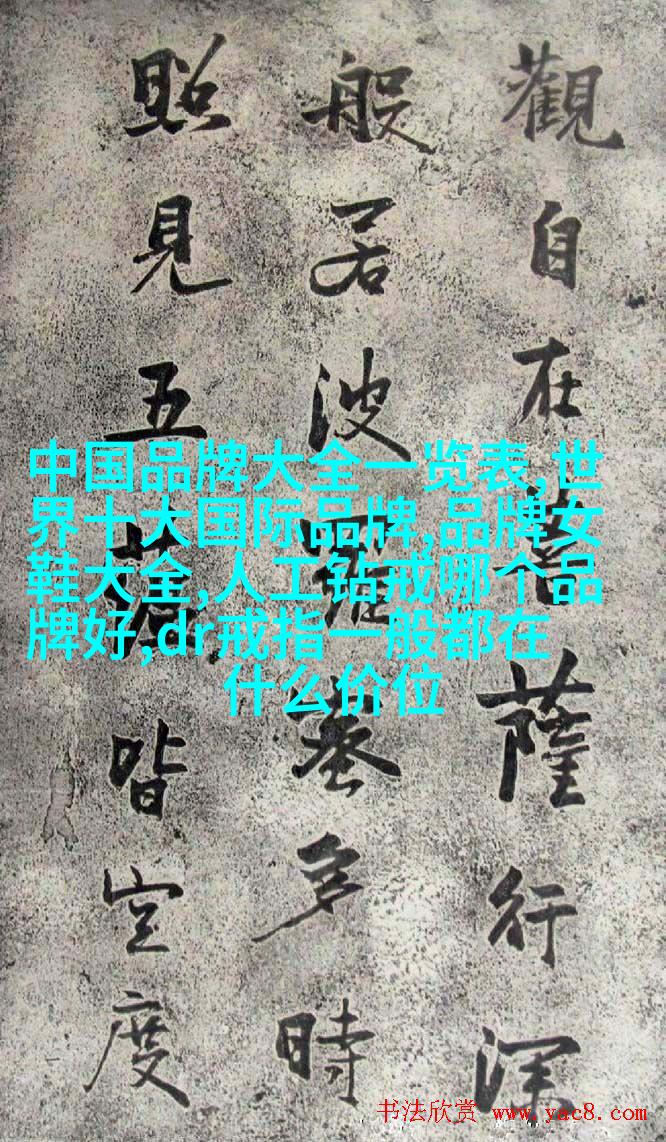 觀自在菩薩行深
般若波羅蜜多時
照見五蘊皆空度
中国品牌大全一览表,世
界十大国际品牌,品牌女
鞋大全,人工钻戒哪个品
牌好,dr戒指一般都在
什么价位
书法欣赏 www.yac8.com